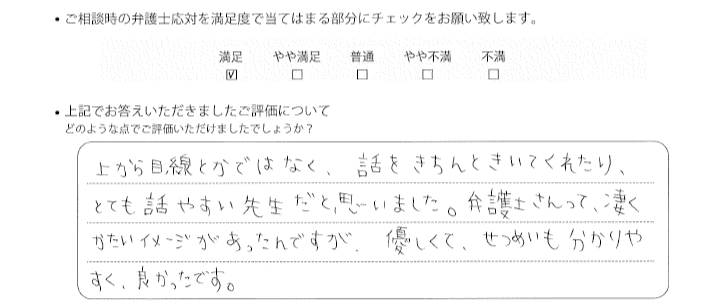 • ご相談時の弁護士応対を満足度で当てはまる部分にチェックをお願い致します。
満足 やや満足 普通 やや不満 不満
☑ ☐ ☐ ☐ ☐
• 上記でお答えいただきましたご評価について
どのような点でご評価いただけましたでしょうか？
上から目線とかではなく、話をきちんときいてくれたり、
とても話やすい先生だと思いました。弁護士さんって、凄く
かたいイメージがあったんですが、優しくて、せつめいも分かりや
すく、良かったです。